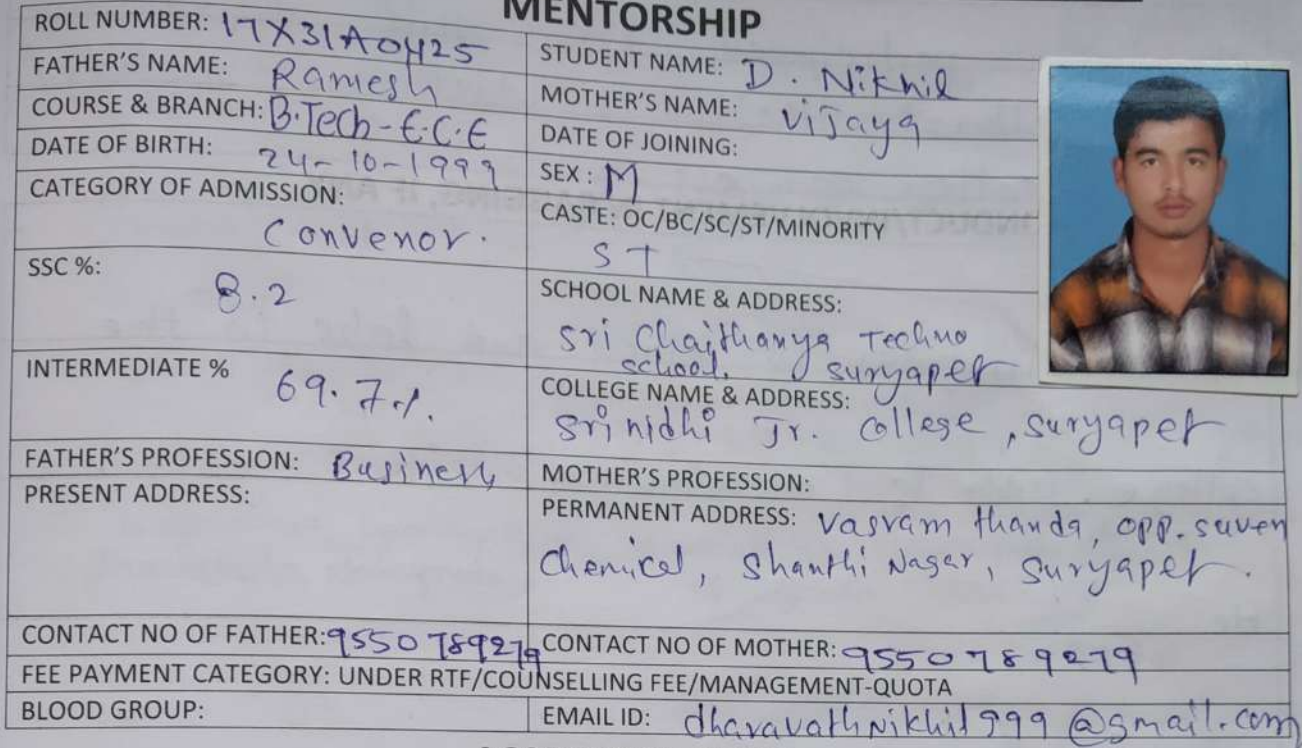 MENTORSHIP
ROLL NUMBER: 17X31A0425
STUDENT NAME: D. Nikhil
FATHER'S NAME: Ramesh
MOTHER'S NAME: Vijaya
COURSE & BRANCH: B.Tech-E.C.E
DATE OF JOINING:
DATE OF BIRTH: 24-10-1999
SEX : M
CATEGORY OF ADMISSION:
Convenor.
CASTE: OC/BC/SC/ST/MINORITY
ST
SSC %:
8.2
SCHOOL NAME & ADDRESS:
Sri Chaithanya Techno
school, suryapet
INTERMEDIATE %
69.7%.
COLLEGE NAME & ADDRESS:
Srinidhi Jr. College, suryapet
FATHER'S PROFESSION: Business
MOTHER'S PROFESSION:
PRESENT ADDRESS:
PERMANENT ADDRESS: Vasram thanda, opp. suven
Chemical, Shanthi Nagar, Suryapet.
CONTACT NO OF FATHER: 9550789279
CONTACT NO OF MOTHER: 9550789279
FEE PAYMENT CATEGORY: UNDER RTF/COUNSELLING FEE/MANAGEMENT-QUOTA
BLOOD GROUP:
EMAIL ID: dharavathnikhil999@gmail.com